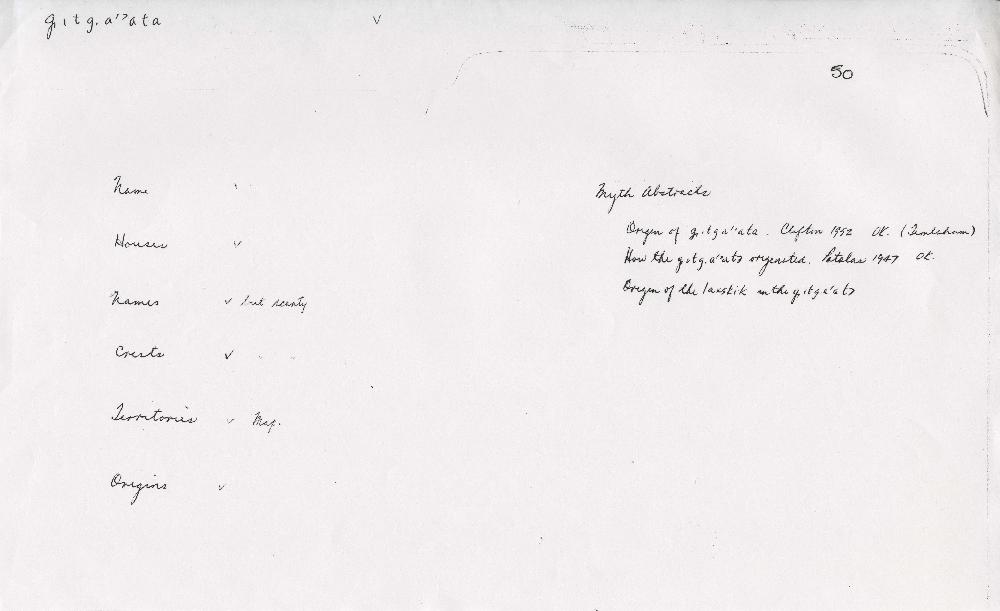 g.itg.a''ata v
50
Name
Houses v
Names v but scanty
Crests v " "
Territories v Map.
Origins v
Myth Abstracts
Origin of g.itg.a''ata. Clifton 1952 OK. (Temlaham)
How the g.itg.a'ata originated. 1947 OK.
Origin of the laxskik in the g.itg.a'ata